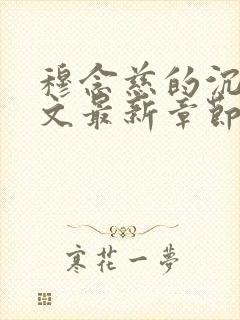 穆念慈的沉
文最新章節
寒花一夢